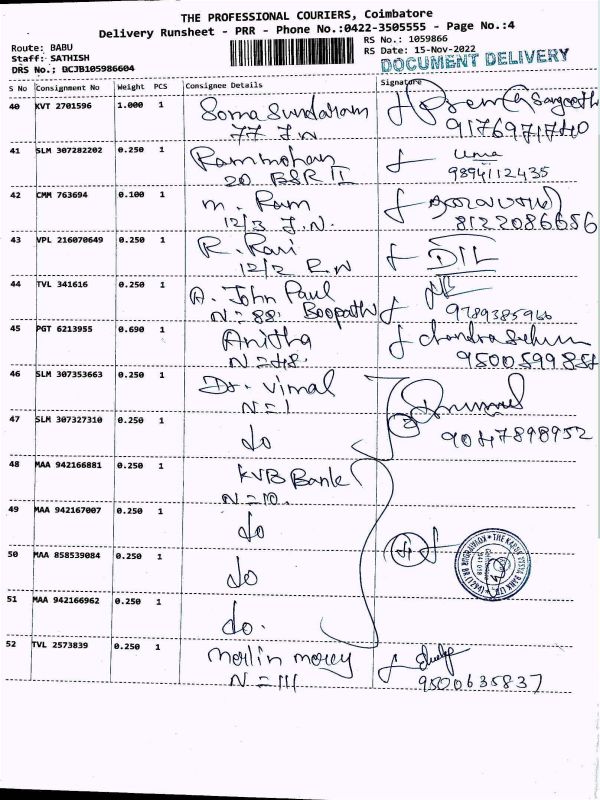 THE PROFESSIONAL COURIERS, Coimbatore
Delivery Runsheet - PRR - Phone No.:0422-3505555 - Page No.:4
Route: BABU
Staff: SATHISH
DRS No.; BCJB105986604
RS No.: 1059866
RS Date: 15-Nov-2022
DOCUMENT DELIVERY
S No Consignment No Weight PCS Consignee Details Signature
40 KVT 2701596 1.000 1 Soma Sundaram
77 J.N 9176971740
41 SLM 307282202 0.250 1 Rammohan uma
20 BSR II 9894112435
42 CMM 763694 0.100 1 M. Ram
12/3 J.N. 8122086656
43 VPL 216070649 0.250 1 R. Ravi DIL
12/2 R.N
44 TVL 341616 0.250 1 A. John Paul
N=88. Boopathy 9789385966
45 PGT 6213955 0.690 1 Anitha
N=48. 9500599854
46 SLM 307353663 0.250 1 Dr. Vimal
N=1
47 SLM 307327310 0.250 1 do 2 9047898952
48 MAA 942166881 0.250 1 KVB Bank
N=10.
49 MAA 942167007 0.250 1 do
50 MAA 858539084 0.250 1 do 4
51 MAA 942166962 0.250 1 do.
52 TVL 2573839 0.250 1 Merlin mercy
N=111 9500635837